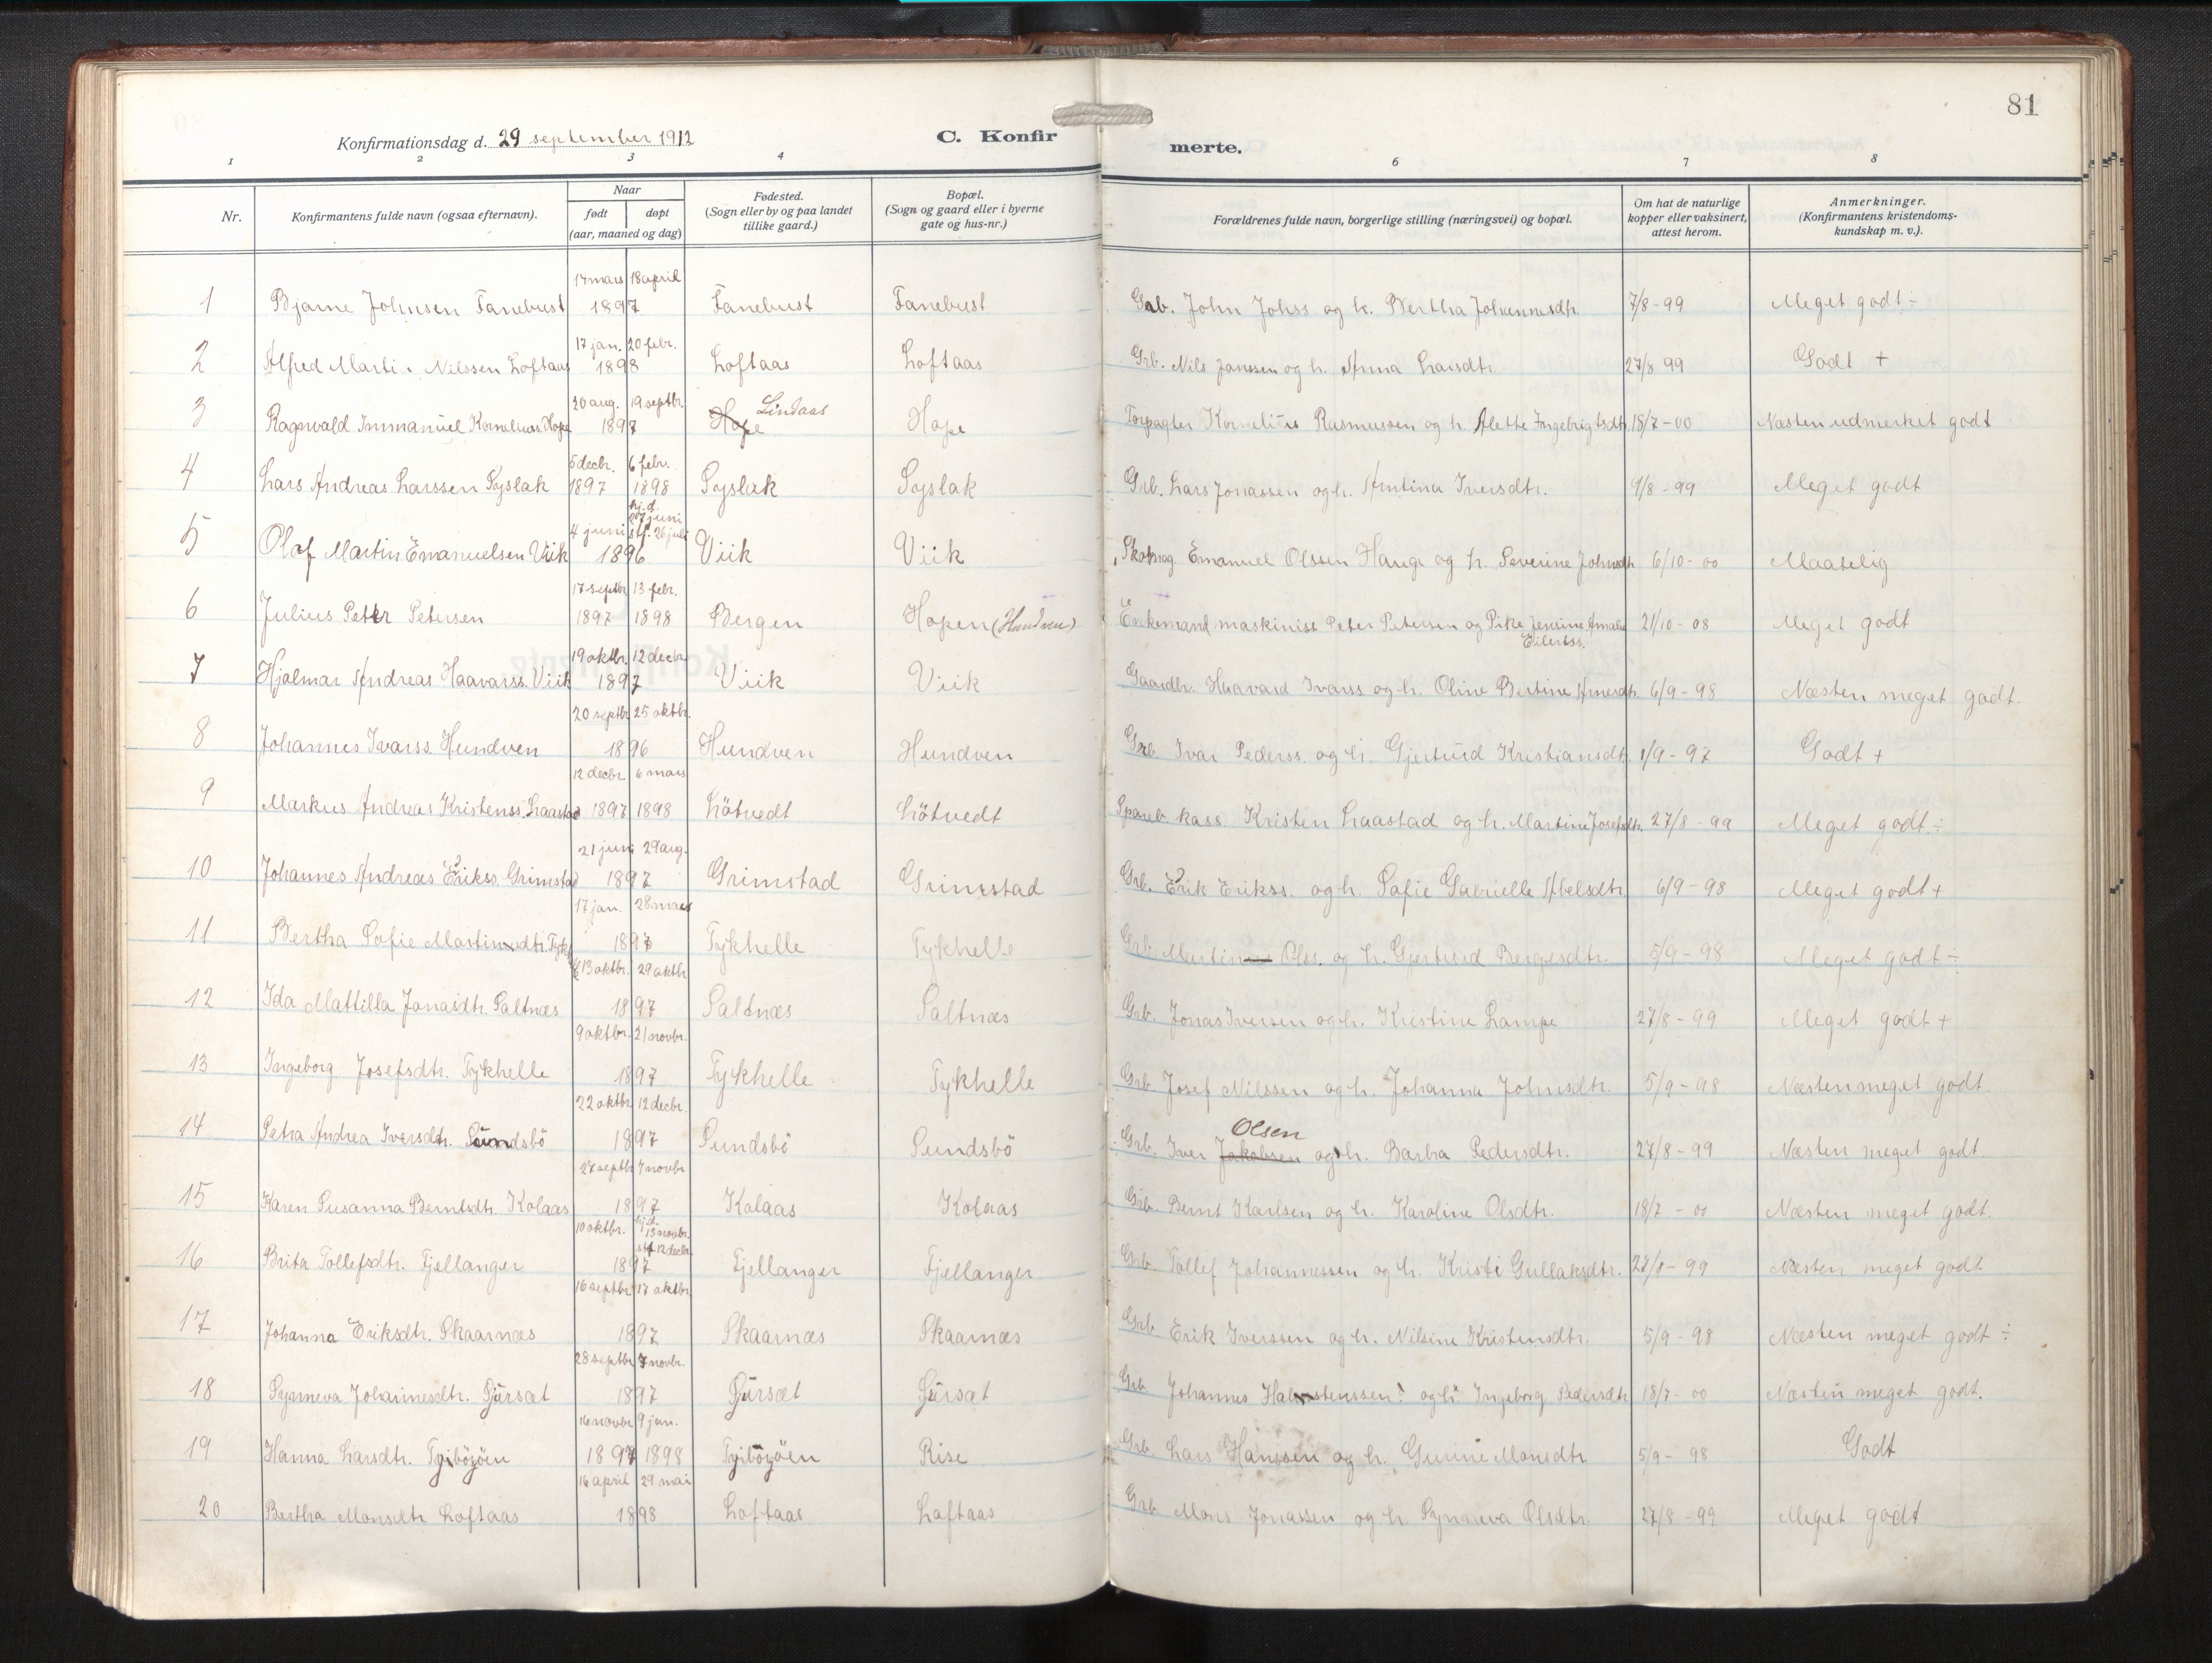 81
Konfirmationsdag d. 29 september 1912
C. Konfirmerte.
1 2 3 4 6 7 8
Nr. Konfirmantens fulde navn (ogsaa efternavn). Naar født døpt (aar, maaned og dag) Fødested. (Sogn eller by og paa landet tillike gaard.) Bopæl. (Sogn og gaard eller i byerne gate og hus-nr.) Forældrenes fulde navn, borgerlige stilling (næringsvei) og bopæl. Om hat de naturlige kopper eller vaksinert, attest herom. Anmerkninger. (Konfirmantens kristendoms-kundskap m. v.).
1 Bjarne Johnsen Fanebust 17 mars 18 april 1897 Fanebust Fanebust Grb. John Johss og h. Bertha Johannesdtr. 7/8-99 Meget godt ÷
2 Alfred Martin Nilssen Loftaas 17 jan. 20 febr. 1898 Loftaas Loftaas Grb. Nils Janssen og h. Anna Larsdtr. 27/8 99 Godt +
3 Ragnvald Immanuel Kornelius Hope 20 aug. 19 septbr. 1897 Hope Lindaas Hope Forpagter Kornelius Rasmussen og h. Alette Ingebrigtsdtr. 18/7-00 Næsten udmerket godt
4 Lars Andreas Larssen Syslak 5 decbr. 1897 6 febr. 1898 Syslak Syslak Grb. Lars Jonassen og h. Antina Iversdtr. 9/8-99 Meget godt
5 Olaf Martin Emanuelsen Viik 4 juni hj.d. 7 juni stf. 26 juli 1896 Viik Viik Skomag. Emanuel Olssen Hauge og h. Severine Johnsdtr 6/10-00 Maatelig
6 Julius Peter Petersen 17 septbr. 1897 13 febr. 1898 Bergen Hopen (Hundven) Enkemand maskinist Peter Petersen og Pike Jensine Amalie Eilertss. 21/10-08 Meget godt
7 Hjalmar Andreas Haavarss. Viik 19 oktbr. 12 decbr. 1897 Viik Viik Gaardbr. Haavard Ivarss og h. Oline Bertine Arnesdtr. 6/9-98 Næsten meget godt.
8 Johannes Ivarss. Hundven 20 septbr. 25 oktbr. 1896 Hundven Hundven Grb. Ivar Pederss. og h. Gjertrud Kristiansdtr. 1/9-97 Godt +
9 Markus Andreas Kristenss. Laastad 12 decbr. 1897 6 mars 1898 Løtvedt Løtvedt Spareb. kass. Kristen Laastad og h. Martine Josefsdtr. 27/8-99 Meget godt ÷
10 Johannes Andreas Erikss. Grimstad 21 juni 29 aug. 1897 Grimstad Grimstad Grb. Erik Erikss. og h. Sofie Gabrielle Abelsdtr. 6/9-98 Meget godt +
11 Bertha Sofie Martinsdtr. Tykh 17 jan. 28 mars 1897 Tykhelle Tykhelle Grb. Martin Olss. og h. Gjertrud Bergesdtr. 5/9-98 Meget godt ÷
12 Ida Mattilla Jonasdtr. Saltnæs 13 oktbr. 29 oktbr 1897 Saltnæs Saltnæs Grb. Jonas Iversen og h. Kristine Lampe 27/8-99 Meget godt +
13 Ingeborg Josefsdtr. Tykhelle 9 oktbr. 21 novbr. 1897 Tykhelle Tykhelle Grb. Josef Nilssen og h. Johanna Johnsdtr. 5/9-98 Næsten meget godt.
14 Petra Andrea Iversdtr. Sundsbö 22 oktbr. 12 decbr. 1897 Sundsbö Sundsbö Grb. Iver Jakobsen Olsen og h. Barbra Pedersdtr. 27/8-99 Næsten meget godt
15 Karen Susanna Berntsdtr. Kolaas 27 septbr 7 novbr 1897 Kolaas Kolaas Grb. Bernt Karlsen og h. Karoline Olsdtr. 18/7-00 Næsten meget godt.
16 Brita Tollefsdtr. Fjellanger 10 oktbr. hj.d. 13 novbr. stf 12 decbr. 1897 Fjellanger Fjellanger Grb. Tollef Johannessen og h. Kristi Gullaksdtr. 27/8-99 Næsten meget godt
17 Johanna Eriksdtr. Skaarnæs 16 septbr. 17 oktbr. 1897 Skaarnæs Skaarnæs Grb. Erik Iverssen og h. Nilsine Kristensdtr. 5/9-98 Næsten meget godt ÷
18 Synneva Johannesdtr. Gjursæt 28 septbr 7 novbr. 1897 Gjursæt Gjursæt Grb Johannes og h. Ingeborg Pedersdtr 18/7-00 Næsten meget godt.
19 Hanna Larsdtr. 16 novbr. 1897 9 jan. 1898 Rise Grb. Lars Hanssen og h. Gurine Monsdtr 5/9-98 Godt
20 Bertha Monsdtr Loftaas 16 april 29 mai 1898 Loftaas Loftaas Grb Mons Jonassen og h. Synneva Olsdtr. 27/8-99 Meget godt